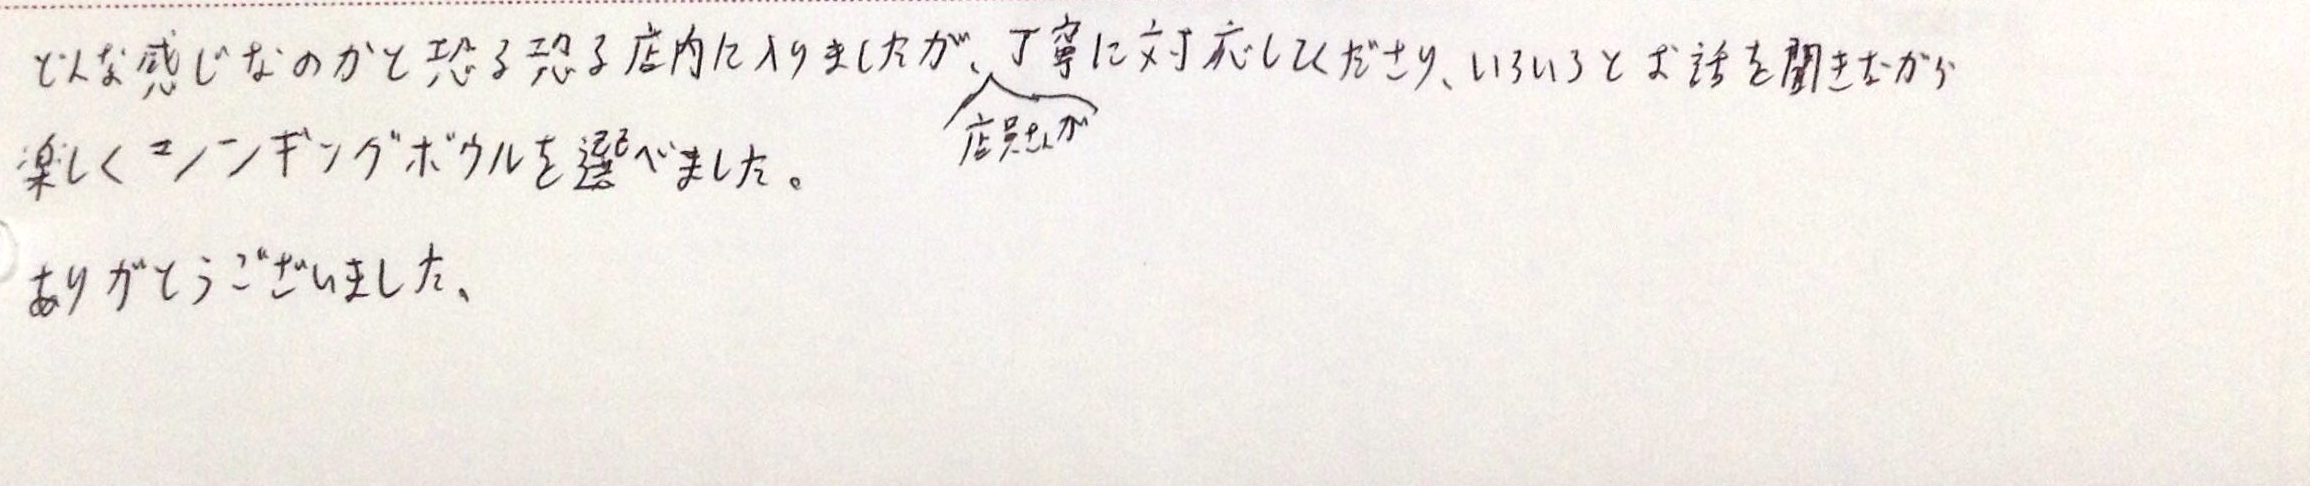 どんな感じなのかと恐る恐る店内に入りましたが、店員さんが丁寧に対応してくださり、いろいろとお話を聞きながら
楽しくシンギングボウルを選べました。
ありがとうございました、